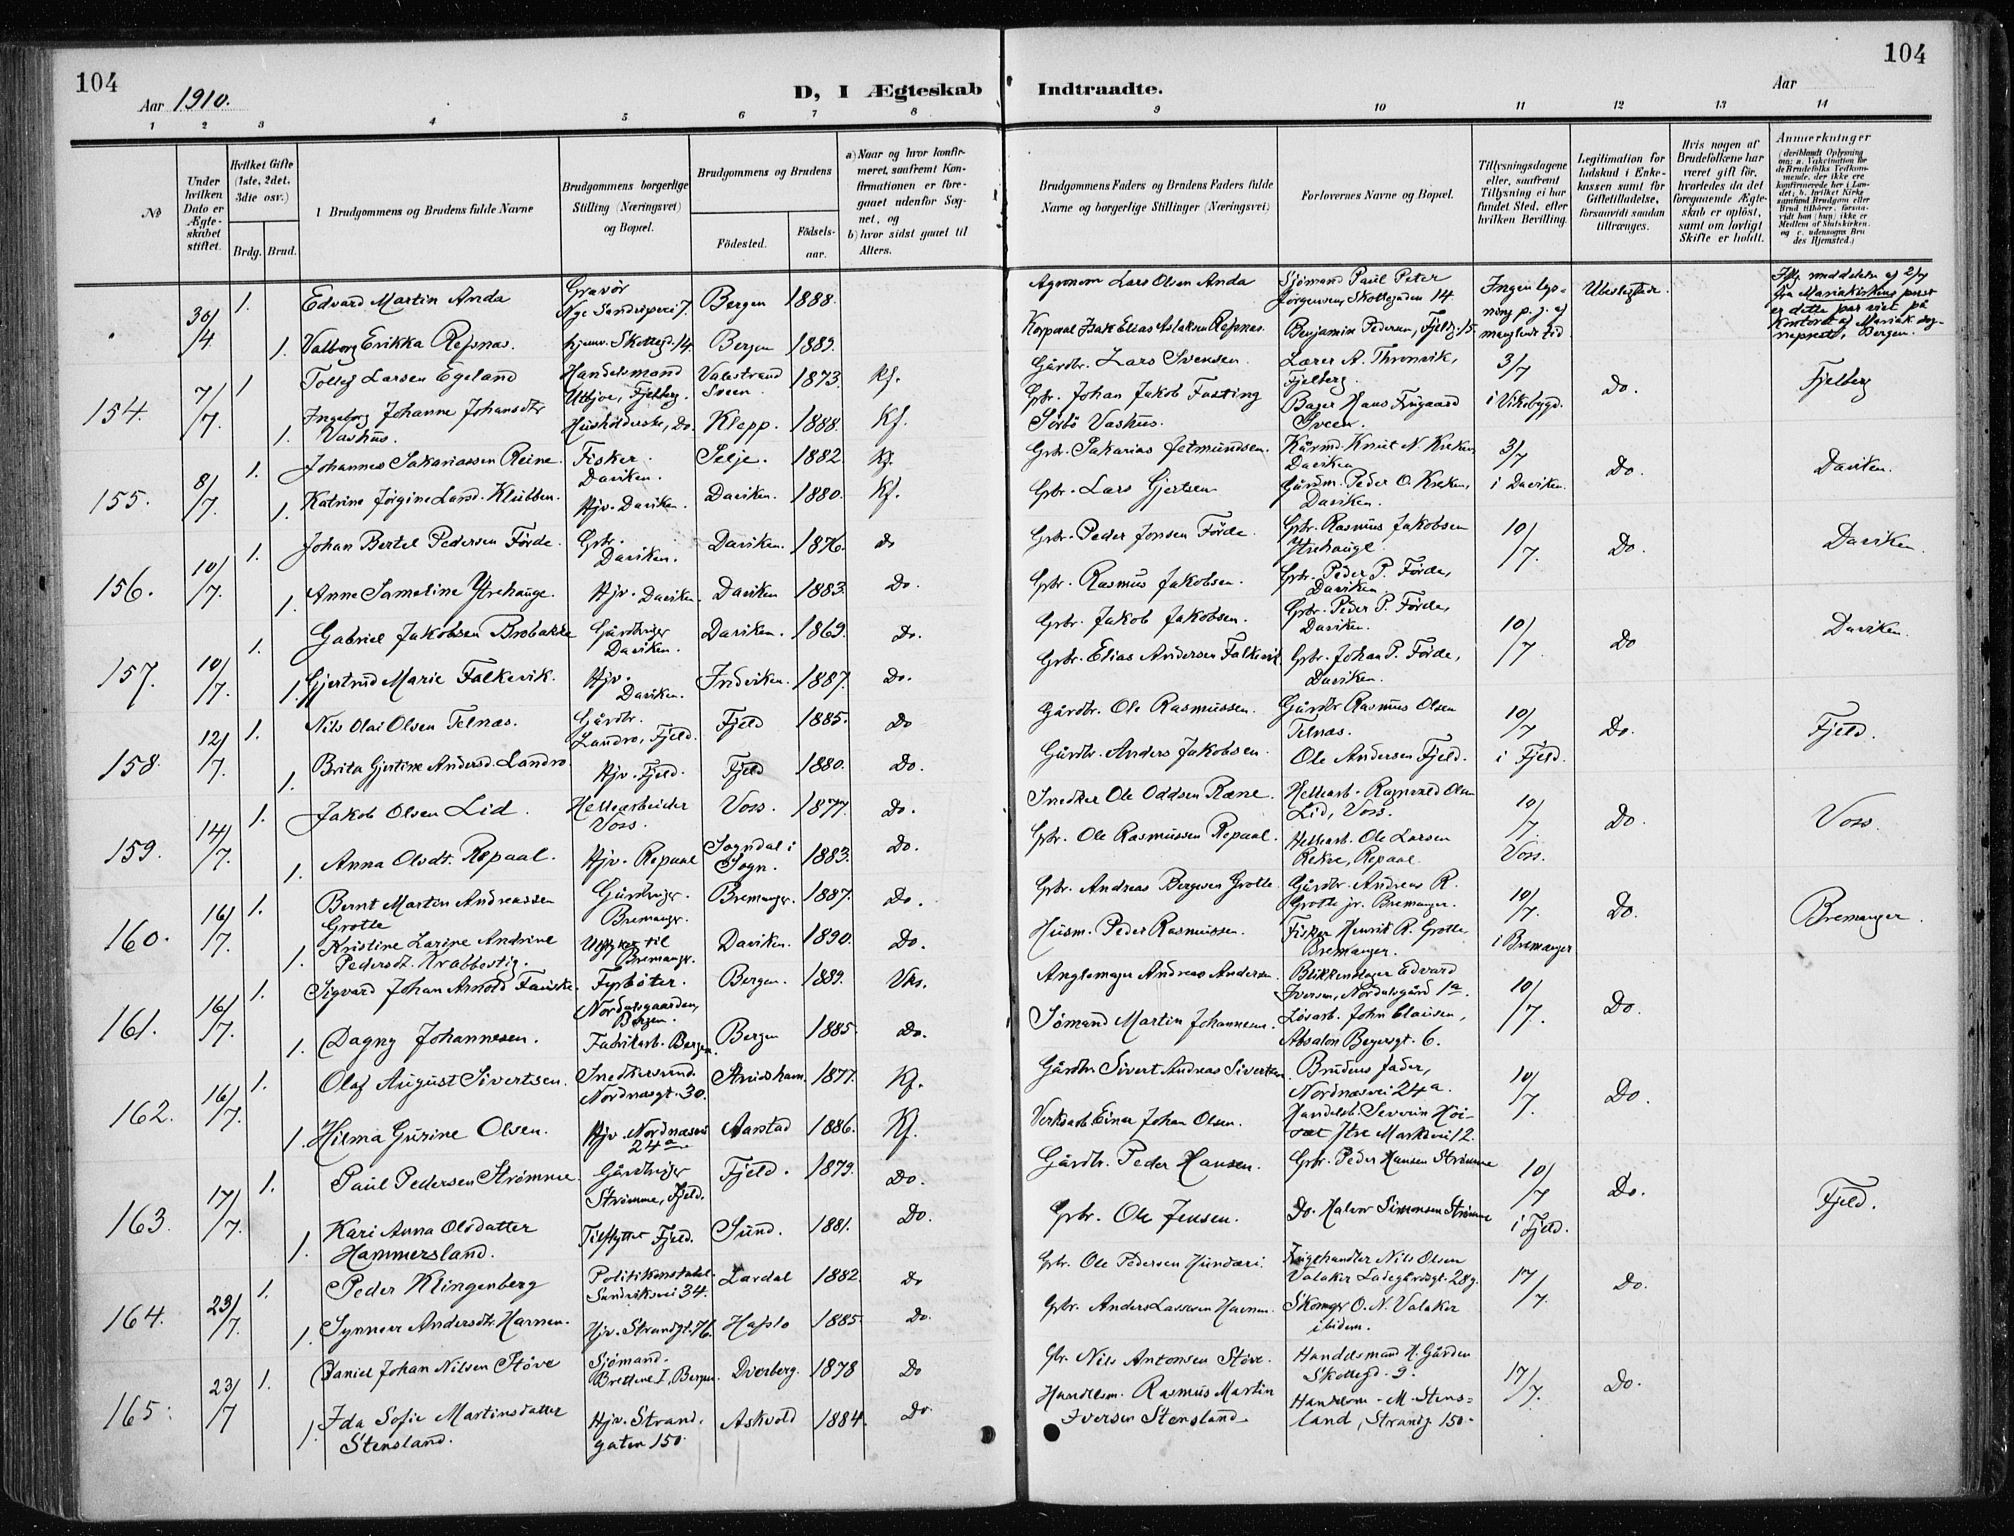 104
104
Aar 1910.
D, I Ægteskab Indtraadte.
Aar
1 2 3 4 5 6 7 8 9 10 11 12 13 14
№
Under hvilken Dato er Ægteskabet stiftet.
Hvilket Gifte (1ste, 2det, 3die osv.)
Brdg. Brud.
Brudgommens og Brudens fulde Navne
Brudgommens borgerlige Stilling (Næringsvei) og Bopæl.
Brudgommens og Brudens
Fødested.
Fødselsaar.
a) Naar og hvor konfirmeret, saafremt Konfirmationen er foregaaet udenfor Sognet, og
b) hvor sidst gaaet til Alters.
Brudgommens Faders og Brudens Faders fulde Navne og borgerlige Stillinger (Næringsvei)
Forlovernes Navne og Bopæl.
Tillysningsdagene eller, saafremt Tillysning ei har fundet Sted, efter hvilken Bevilling.
Legitimation for Indskud i Enkekassen samt for Giftetilladelse, forsaavidt saadan tiltrænges.
Hvis nogen af Brudefolkene har været gift før, hvorledes da det foregaaende Ægteskab er opløst, samt om lovligt Skifte er holdt.
Anmerkninger
30/4 1. Edvard Martin Anda Gravör Nye Sandviksvei 7. Bergen 1888. Agronom Lars Olsen Anda Sjömand Paul Peter Jörgensen, Skottegaden 14
1. Valborg Erikka Refsnæs. Hjemv. Skotteg. 14. Bergen 1889. Benjamin Pedersen,
154. 7/7. 1 Tollef Larsen Egeland Handelsmand Fjelberg. Valestrand Sveen. 1873. Kf. Gårdbr. Lars Svensen. Fjelberg. 3/7 i Vikebygd. Do. Fjelberg
1. Ingeborg Johanne Johansdtr Vashus. Husholderske, Do. Klepp. 1888. Kf. Gbr. Johan Jakob Fasting Sörbö Vashus. Sveen.
155. 8/7. 1. Johannes Sakariassen Reine. Fisker. Daviken. Selje. 1882. Kf. Gbr. Sakarias Daviken 3/7 i Daviken. Do. Daviken.
1. Katrine Jørgine Larsd. Klubben. Hjv. Daviken. Daviken. 1880. Kf. Gbr. Lars Gjertsen Gårdm. Peder O. Daviken.
156. 10/7. 1. Johan Bertel Pedersen Förde. Gbr. Daviken. Daviken. 1876. do Gbr. Peder Jonsen Förde. Gbr. Rasmus Jakobsen Ytrehauge. 10/7. Do. Daviken.
1. Anne Sameline Ytrehauge. Hjv. Daviken. Daviken 1883. Do. Gbr. Rasmus Jakobsen. Gbr. Peder P. Förde, Daviken
157. 10/7. 1. Gabriel Jakobsen Brobakke Gårdbruger Daviken. Daviken. 1869. Do. Gbr. Jakob Jakobsen. Gbr. Peder P. Förde, Daviken. 10/7. Do Daviken.
1. Gjertrud Marie Falkevik. Hjv. Daviken. Indviken. 1887. Do. Gbr. Elias Andersen Falkevik. Gbr. Johan P. Förde, Daviken.
158. 12/7. 1. Nils Olai Olsen Telnæs. Gårdbr. Landro, Fjeld. Fjeld 1885. Do Gårdbr. Ole Rasmussen. Gårdbr Rasmus Olsen Telnæs. 10/7 i Fjeld. Do. Fjeld.
1. Brita Gjertine Andersd. Landro. Hjv. Fjeld. Fjeld 1880. Do. Gårdbr. Anders Jakobsen. Ole Andersen Fjeld.
159. 14/7. 1. Jakob Olsen Lid. Hellearbeider Voss. Voss. 1877. Do. Snedker Ole Oddsen Ræne. Hellearb. Ragnvald Olsen Lid, Voss. 10/7. Voss. Do. Voss.
1. Anna Olsdt. Repaal. Hjv. Repaal Sogndal i Sogn. 1883. Do. Gbr. Ole Rasmussen Repaal. Hellearb. Ole Larsen Rekve, Repaal.
160. 16/7. 1. Bernt Martin Andreassen Grotle Gårdbruger Bremanger. Bremanger. 1887. Do. Gbr. Andreas Bergesen Grotle. Gårdbr. Andreas R. Grotle jr. Bremanger. 10/7. i Bremanger Do. Bremanger.
1. Kristine Larine Andrine Pedersdt. Krabbestig. til Bremangr. Daviken. 1890. Do. Husm. Peder Rasmussen. Fisker Henrik R. Grotle Bremanger.
161. 16/7. 1. Sigvard Johan Arnold Fanske. Fyrbøter. Nordalsgaarden, Bergen. Bergen. 1889. Andreas Andersen. Blikkenslager Edvard Iversen, Nordalsgård 1a. 10/7. Do.
1. Dagny Johannesen. Fabrikarb. Bergen. Bergen 1885. Do. Sømand Martin Johannesen. Løsarb. John Clausen, Absalon Beyersgt. 6.
162. 16/7. 1. Olaf August Sivertsen. Snedkersvend Nordnæsgt. 30. 1877. Kf. Gårdbr Sivert Andreas Sivertsen. Brudens fader, Nordnæsvei 24a. 10/7. Do.
1. Hilma Gurine Olsen. Hjv. Nordnæsvei 24a Aarstad 1886. Kf. Verksarb Einar Johan Olsen. Handelsb. Severin Ytre Markevei 12.
163. 17/7. 1. Paul Pedersen Strømme. Gårdbruger Strømme, Fjeld. Fjeld. 1879. Do. Gårdbr. Peder Hansen. Gbr. Peder Hansen Strømme 10/7 i Fjeld. Do. Fjeld.
1. Kari Anna Olsdatter Hammersland. Tilflyttet Fjeld. Sund. 1881. Do. Gbr. Ole Jensen. Do. Halvor Simonsen Strømme
164. 23/7. 1. Peder Klingenberg Politikonstabel Sandviksvei 34. Lærdal 1882. Do Gbr. Ole Pedersen Hundæri. Nils Olsen Valaker Ladegårdsgt. 28g. 17/7. Do.
1. Synneve Andersdtr. Havnen. Hjv. Strandgt. 76. Hafslo 1885. Do. Gbr. Anders Lassesen Havnen. Skomgr O. N. Valaker ibidem.
165. 23/7 1. Daniel Johan Nilsen Støve Sjömand. Bergen. Dverberg. 1878 Do Gbr. Nils Antonsen Støve. Handelsmand H. Gården Skottegd. 9. 17/7. Do.
1. Ida Sofie Martinsdatter Stensland. Hjv. Strandgaten 150. Askvold 1884. Do. Handelsm. Rasmus Martin Iversen Stensland. Handelsm. M. Stensland, Strandg 150.